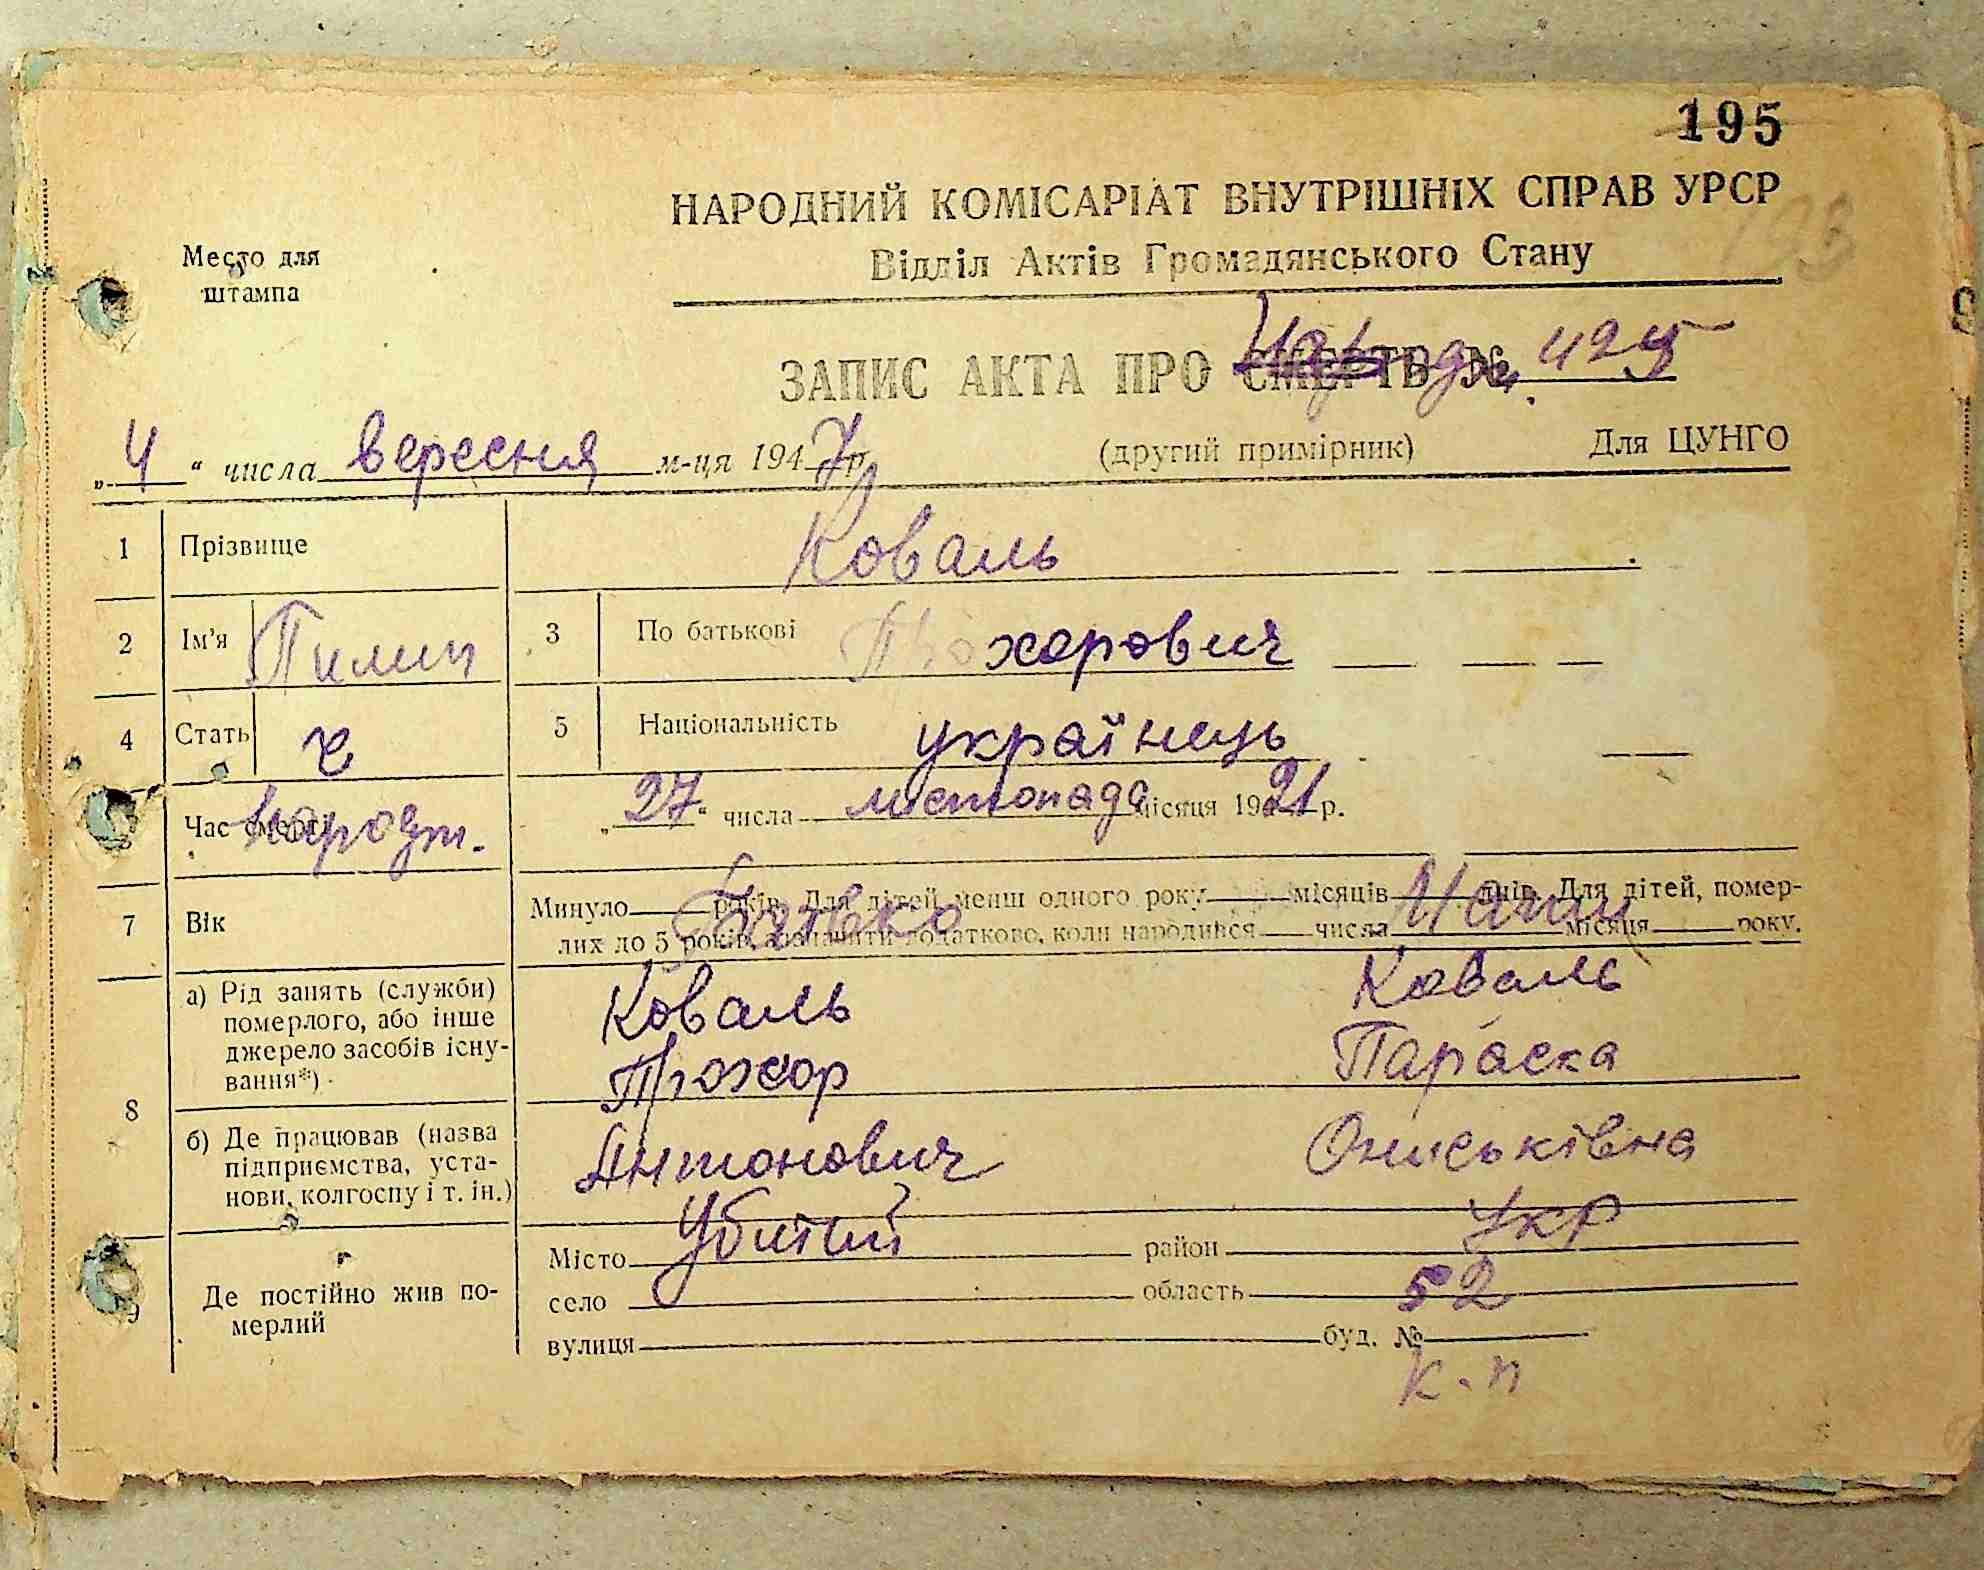 195
НАРОДНИЙ КОМІСАРІАТ ВНУТРІШНІХ СПРАВ УРСР
Відділ Актів Громадянського Стану
Место для
штампа
ЗАПИС АКТА ПРО СМЕРТЬ №
„4“ числа вересня м-ця 1947 р.
(другий примірник) Для ЦУНГО
1 Прізвище Коваль
2 Ім'я Пилип 3 По батькові Прохорович
4 Стать ч 5 Національність українець
Час смерті народж. „27“ числа листопада місяця 1921 р.
7 Вік Минуло років. Для дітей менш одного року місяців днів. Для дітей, помер-
лих до 5 років, зазначити додатково, коли народився числа місяця року.
Батько Мати
8 а) Рід занять (служби)
померлого, або інше
джерело засобів існу-
вання*)
Коваль Коваль
Прохор Параска
б) Де працював (назва
підприємства, уста-
нови, колгоспу і т. ін.)
Антонович Ониськівна
9 Де постійно жив по-
мерлий
Убитий укр
Місто район
село область 52
вулиця буд. №
к.п